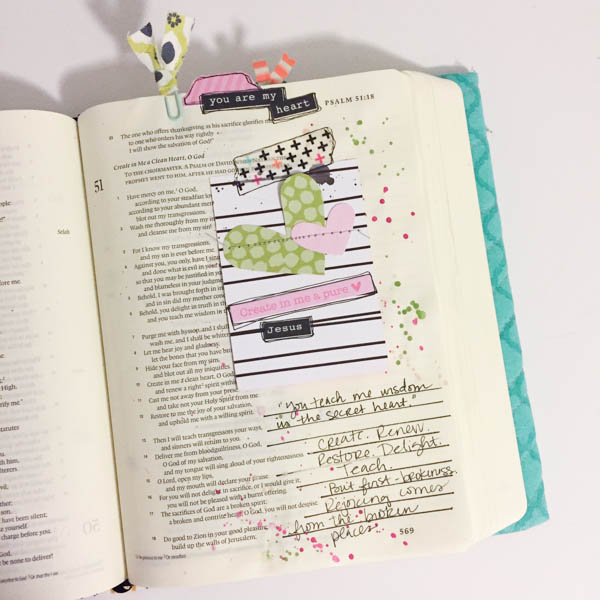 you are my
heart
PSALM 51:18
23 The one who offers thanksgiving as his sacrifice glorifies
to one who orders his way rightly
I will show the salvation of God!"
Create in Me a Clean Heart, O God
51 TO THE CHOIRMASTER. A PSALM OF DAVID
PROPHET WENT TO HIM, AFTER HE HAD GO
1 Have mercy on me, O God,
according to your steadfast lo
according to your abundant mer
blot out my transgressions.
2 Wash me thoroughly from my
and cleanse me from my sin!
3 For I know my transgressions,
and my sin is ever before me.
4 Against you, you only, have I si
and done what is evil in your
so that you may be justified in yo
and blameless in your judgme
5 Behold, I was brought forth in i
and in sin did my mother con
6 Behold, you delight in truth in t
and you teach me wisdom in
Create in me a pure
Jesus
7 Purge me with hyssop, and I shal
wash me, and I shall be white
8 Let me hear joy and gladness;
let the bones that you have br
9 Hide your face from my sins,
and blot out all my iniquities.
10 Create in me a clean heart, O God
and renew a right spirit within
11 Cast me not away from your prese
and take not your Holy Spirit from
12 Restore to me the joy of your salvation,
and uphold me with a willing spirit.
13 Then I will teach transgressors your ways,
and sinners will return to you.
14 Deliver me from bloodguiltiness, O God,
O God of my salvation,
and my tongue will sing aloud of your righteousness
15 O Lord, open my lips,
and my mouth will declare your praise
16 For you will not delight in sacrifice, or I would give it;
you will not be pleased with a burnt offering.
17 The sacrifices of God are a broken spirit;
a broken and contrite heart, O God, you will not despise
18 Do good to Zion in your good pleasure;
build up the walls of Jerusalem;
"you teach me wisdom
in the secret heart."
Create. Renew.
Restore. Delight.
Teach.
But first - brokenness.
Rejoicing comes
from the broken
places.
569
Selah